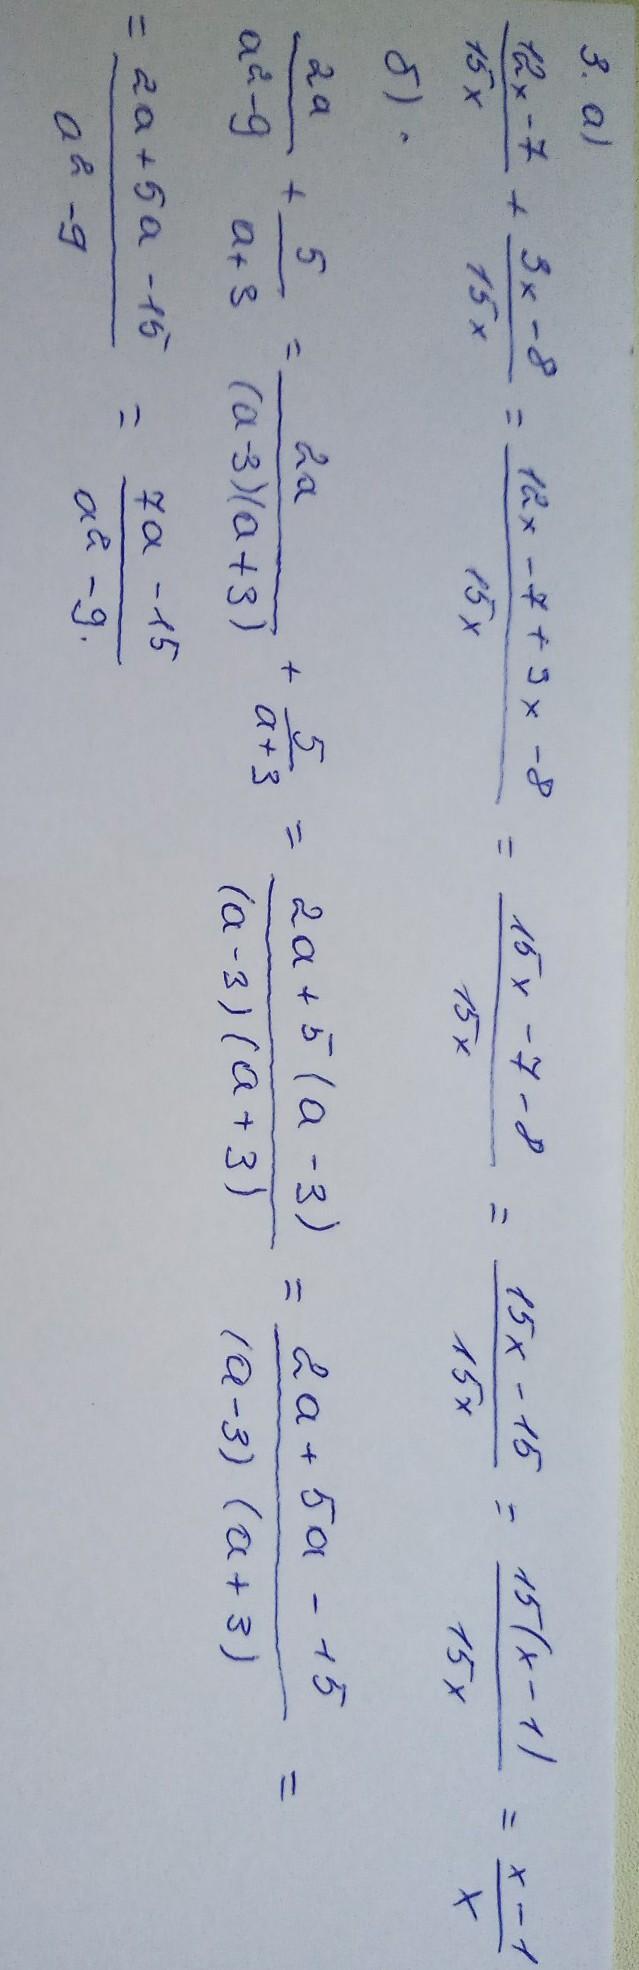 3. а)
12x-7/15x + 3x-8/15x = 12x-7+3x-8/15x = 15x-7-8/15x = 15x-15/15x = 15(x-1)/15x = x-1/x
б).
2a/a²-9 + 5/a+3 = 2a/(a-3)(a+3) + 5/a+3 = 2a+5(a-3)/(a-3)(a+3) = 2a+5a-15/(a-3)(a+3) =
= 2a+5a-15/a²-9 = 7a-15/a²-9.